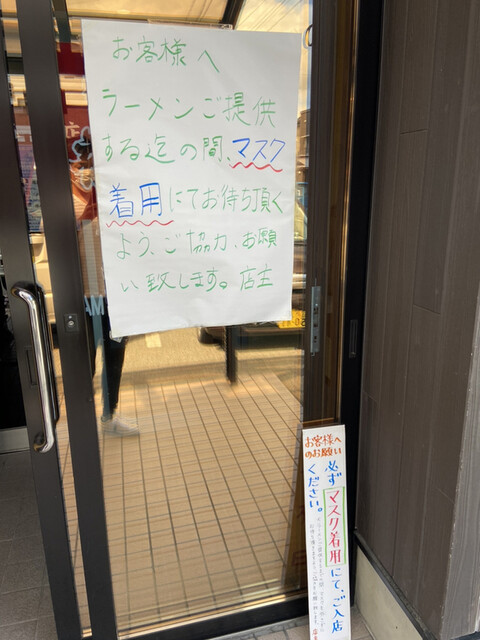 お客様へ
ラーメンご提供
する迄の間、マスク
着用にてお待ち頂く
よう、ご協力、お願
い致します。店主
お客様へ
のお願い
必ずマスク着用にて、ご入店
ください。